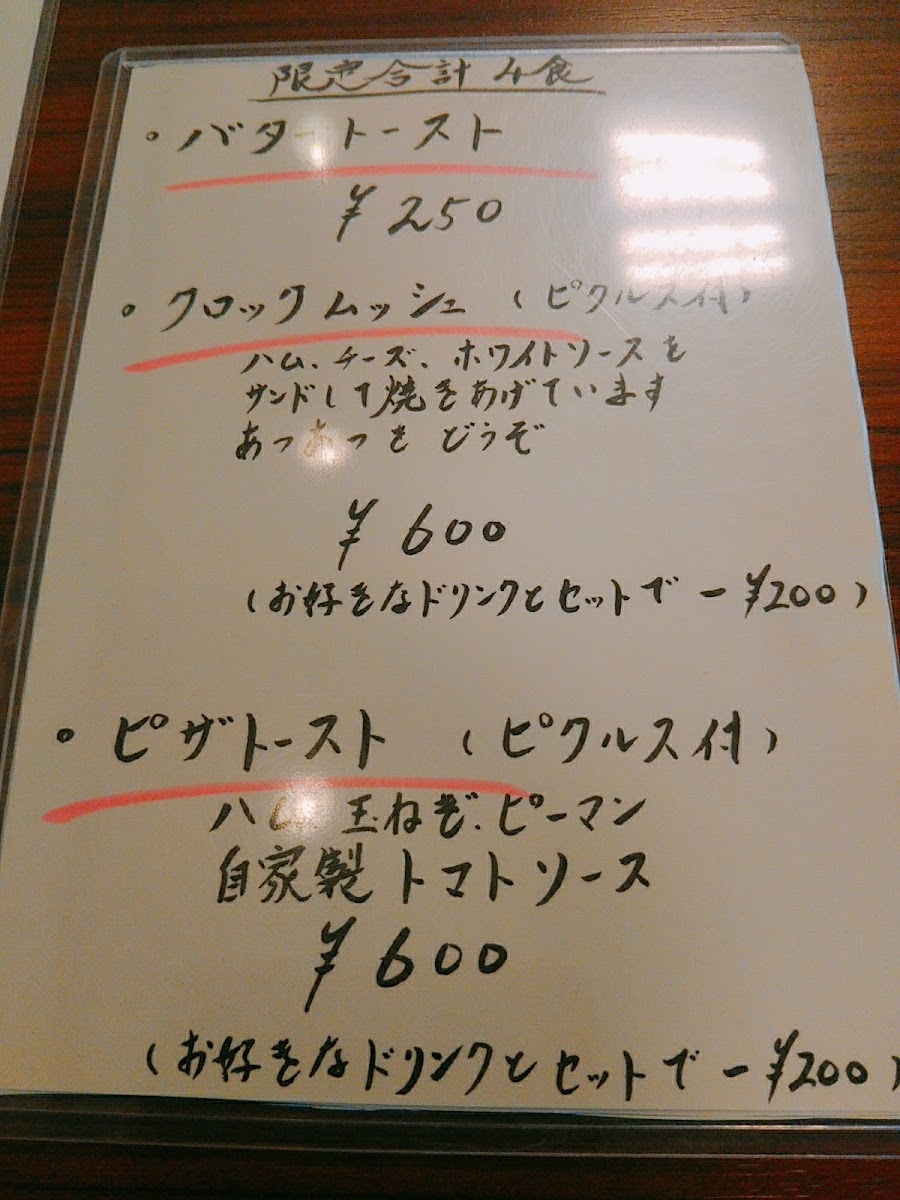 限定合計4食
・バタートースト
¥250
・クロックムッシュ (ピクルス付)
ハム、チーズ、ホワイトソースを
サンドして焼きあげています
あつあつを どうぞ
¥600
(お好きなドリンクとセットで ー¥200)
・ピザトースト (ピクルス付)
ハム、玉ねぎ、ピーマン
自家製トマトソース
¥600
(お好きなドリンクとセットで ー¥200)